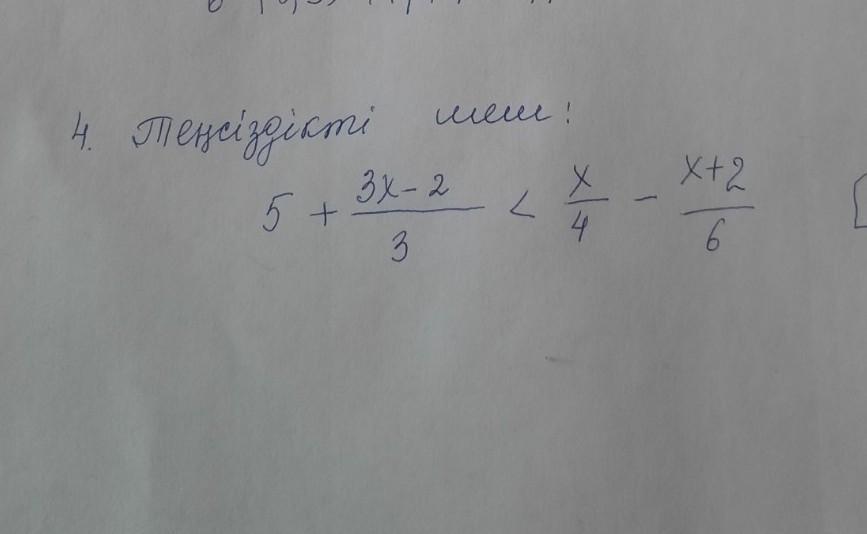 4. Теңсіздікті шеш:
5 + \frac{3x-2}{3} < \frac{x}{4} - \frac{x+2}{6}